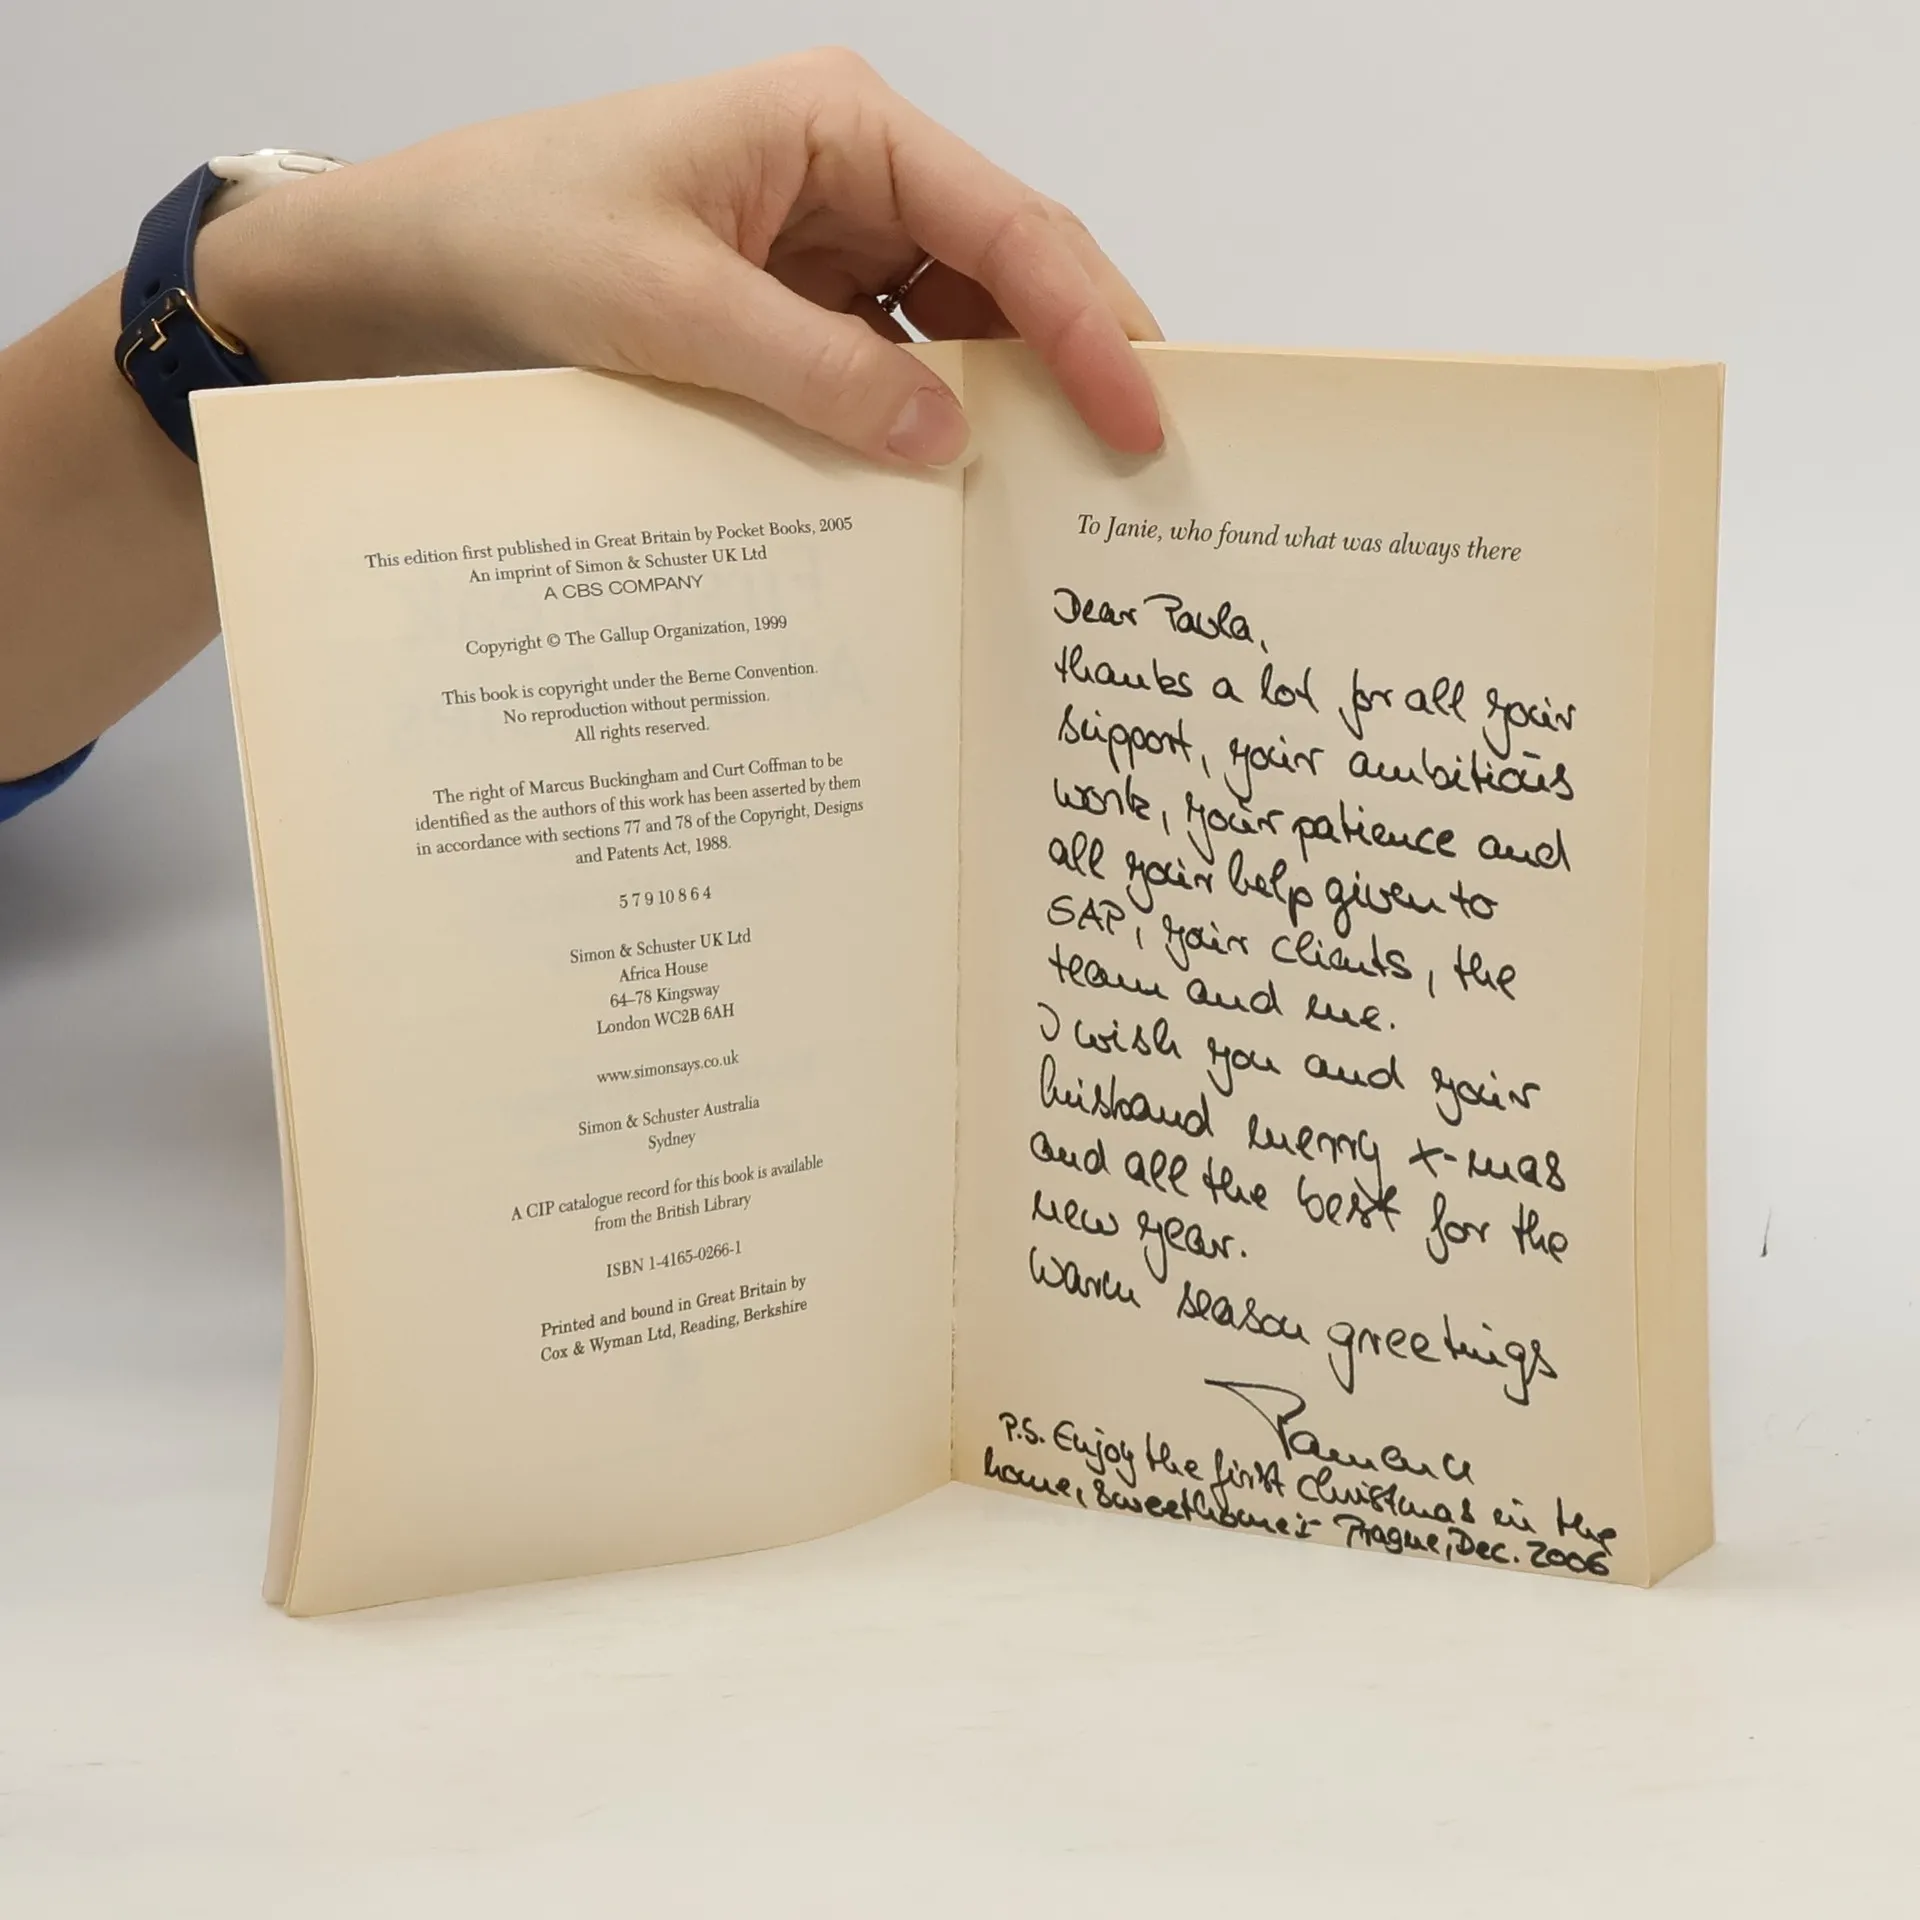 This edition first published in Great Britain by Pocket Books, 2005
An imprint of Simon & Schuster UK Ltd
A CBS COMPANY
Copyright © The Gallup Organization, 1999
This book is copyright under the Berne Convention.
No reproduction without permission.
All rights reserved.
The right of Marcus Buckingham and Curt Coffman to be
identified as the authors of this work has been asserted by them
in accordance with sections 77 and 78 of the Copyright, Designs
and Patents Act, 1988.
5 7 9 10 8 6 4
Simon & Schuster UK Ltd
Africa House
64–78 Kingsway
London WC2B 6AH
www.simonsays.co.uk
Simon & Schuster Australia
Sydney
A CIP catalogue record for this book is available
from the British Library
ISBN 1-4165-0266-1
Printed and bound in Great Britain by
Cox & Wyman Ltd, Reading, Berkshire
To Janie, who found what was always there
Dear Paula,
thanks a lot for all your
support, your ambitious
work, your patience and
all your help given to
SAP, your clients, the
team and me.
I wish you and your
husband merry x-mas
and all the best for the
new year.
Warm season greetings
P.S. Enjoy the first Christmas in the
home, sweethome Prague, Dec. 2006